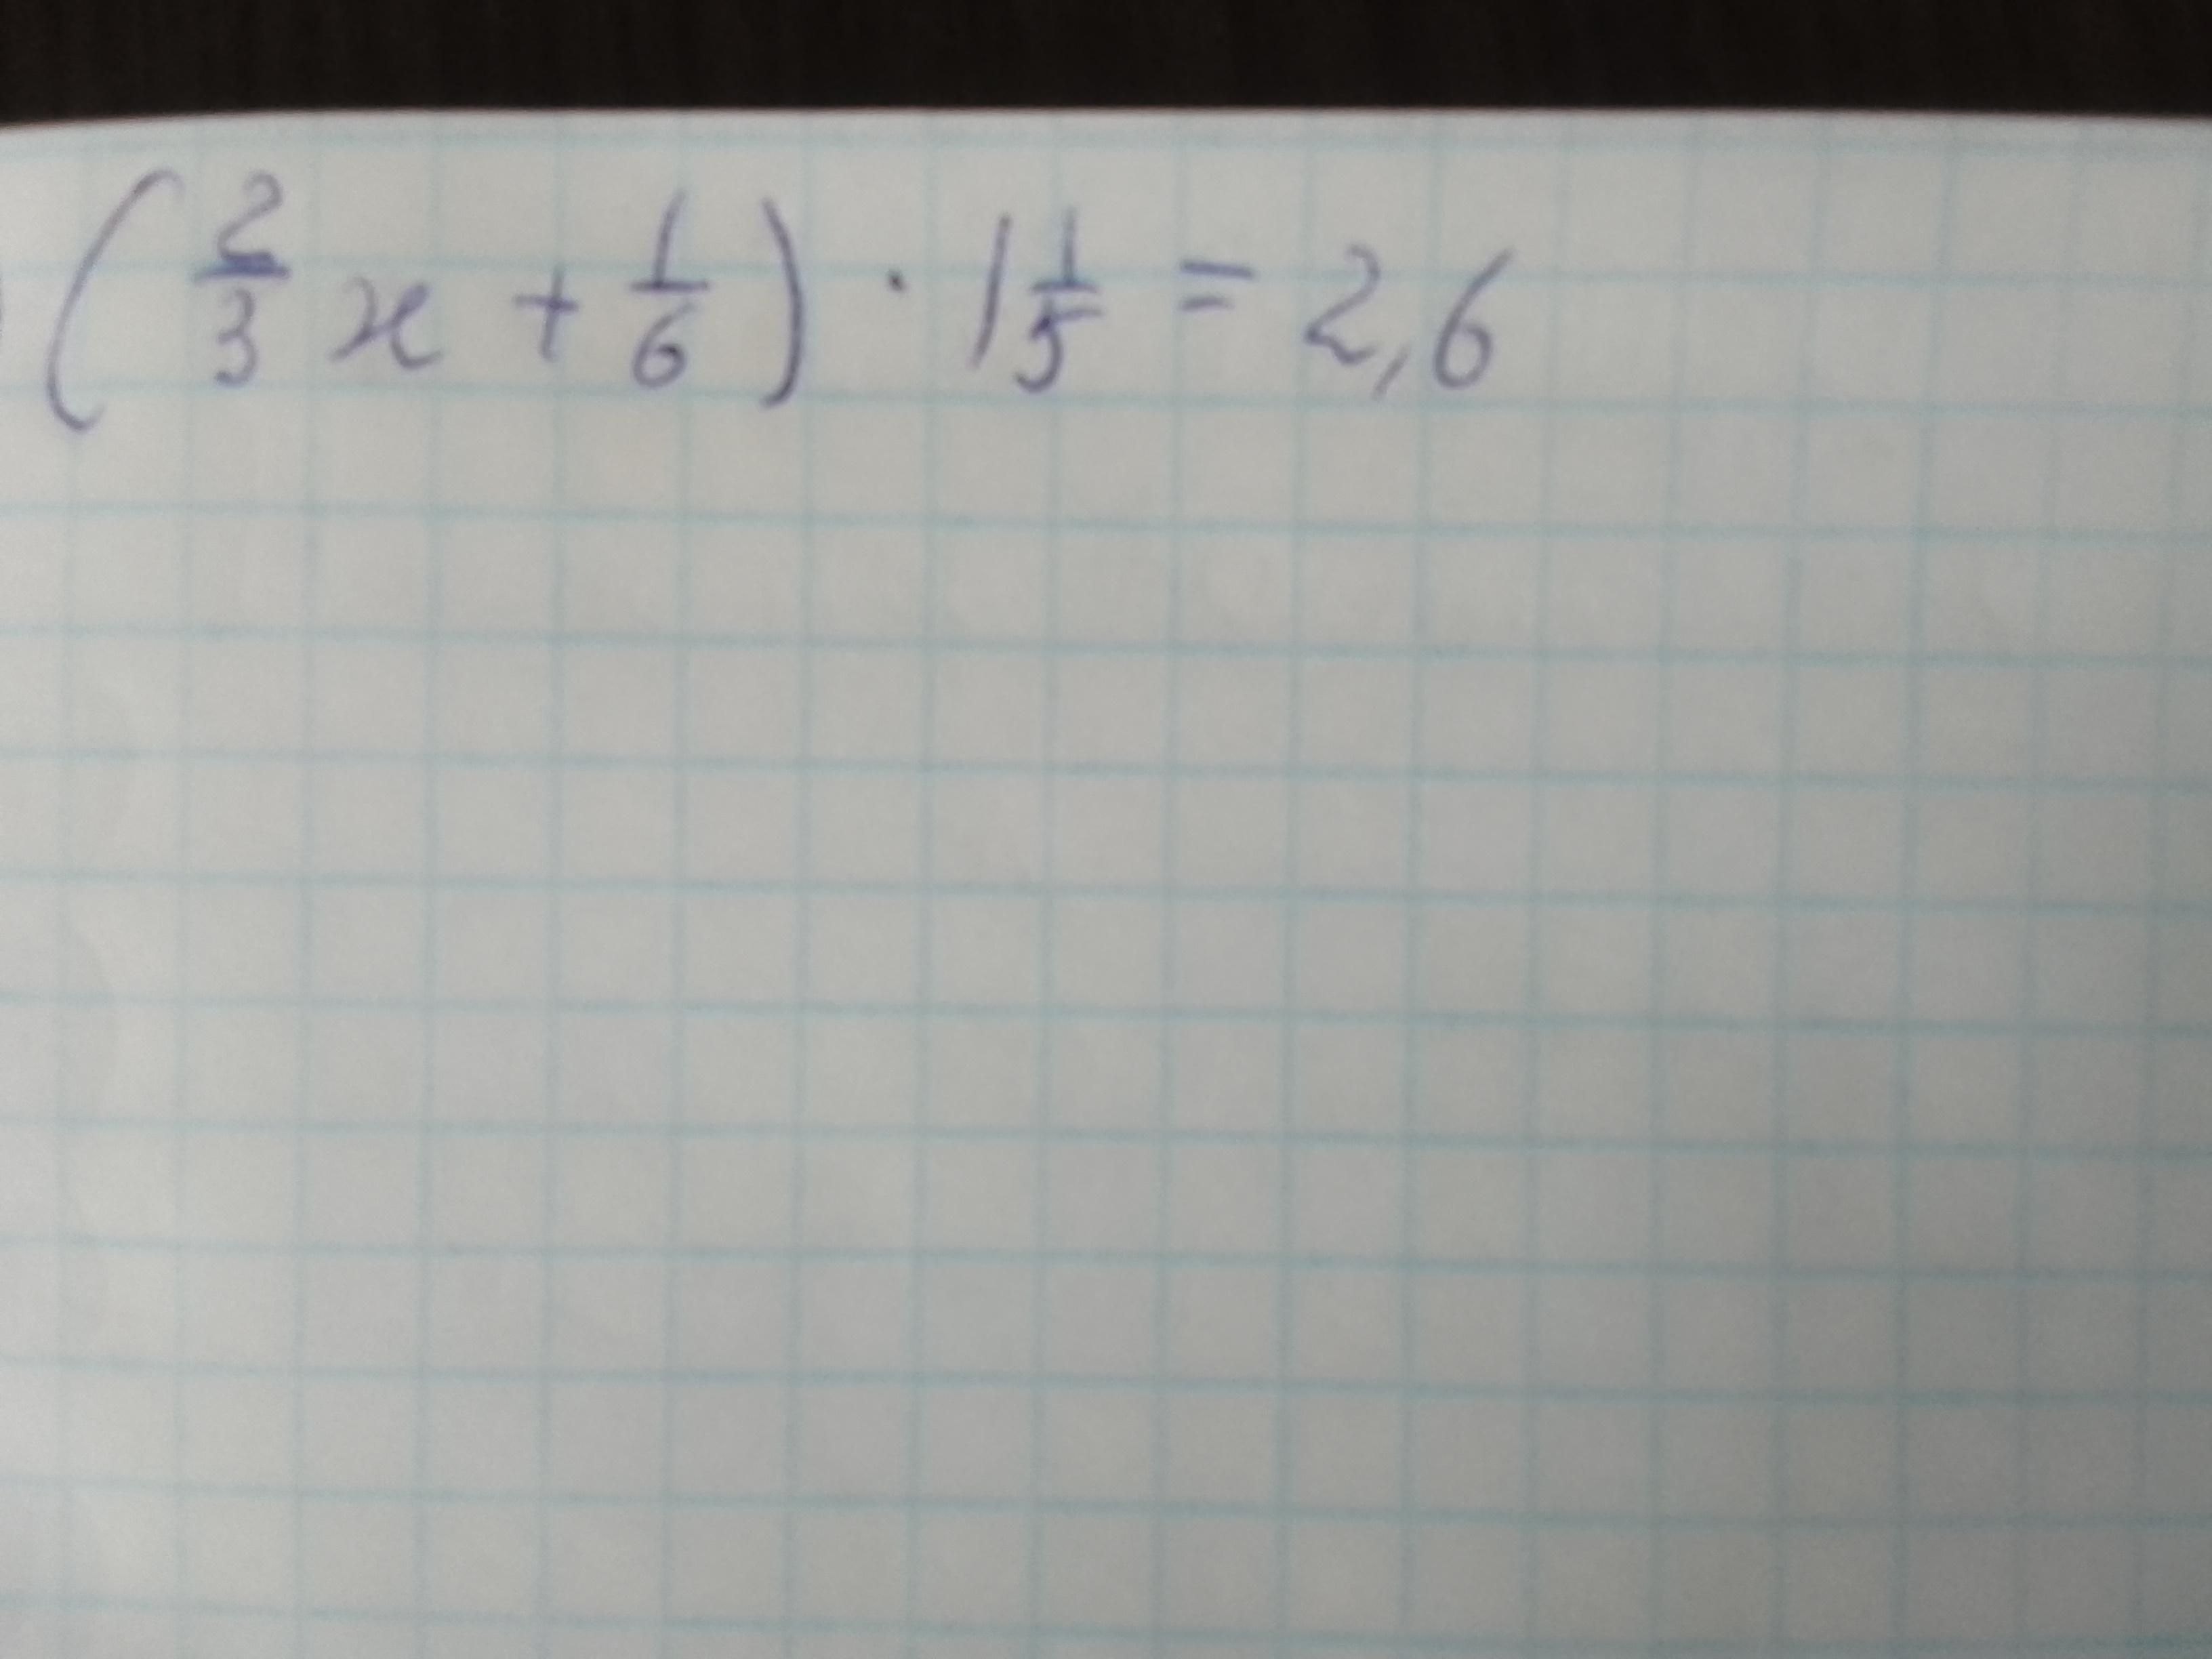 (2/3 x + 1/6) · 1 1/5 = 2,6